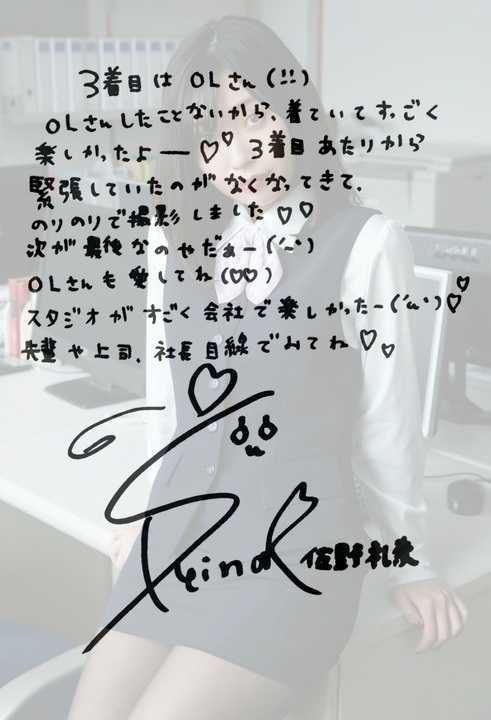 3着目は OLさん(!!)
OLさんしたことないから、着ていてすっごく
楽しかったよー♡♡ 3着目あたりから
緊張していたのがなくなってきて、
のりのりで撮影しました♡♡
次が最後なのやだぁー(´-`)
OLさんも愛してね(♡♡)
スタジオがすごく会社で楽しかったー(´ω`)♡♡
先輩や上司、社長目線でみてね♡♡
Reina 佐野礼